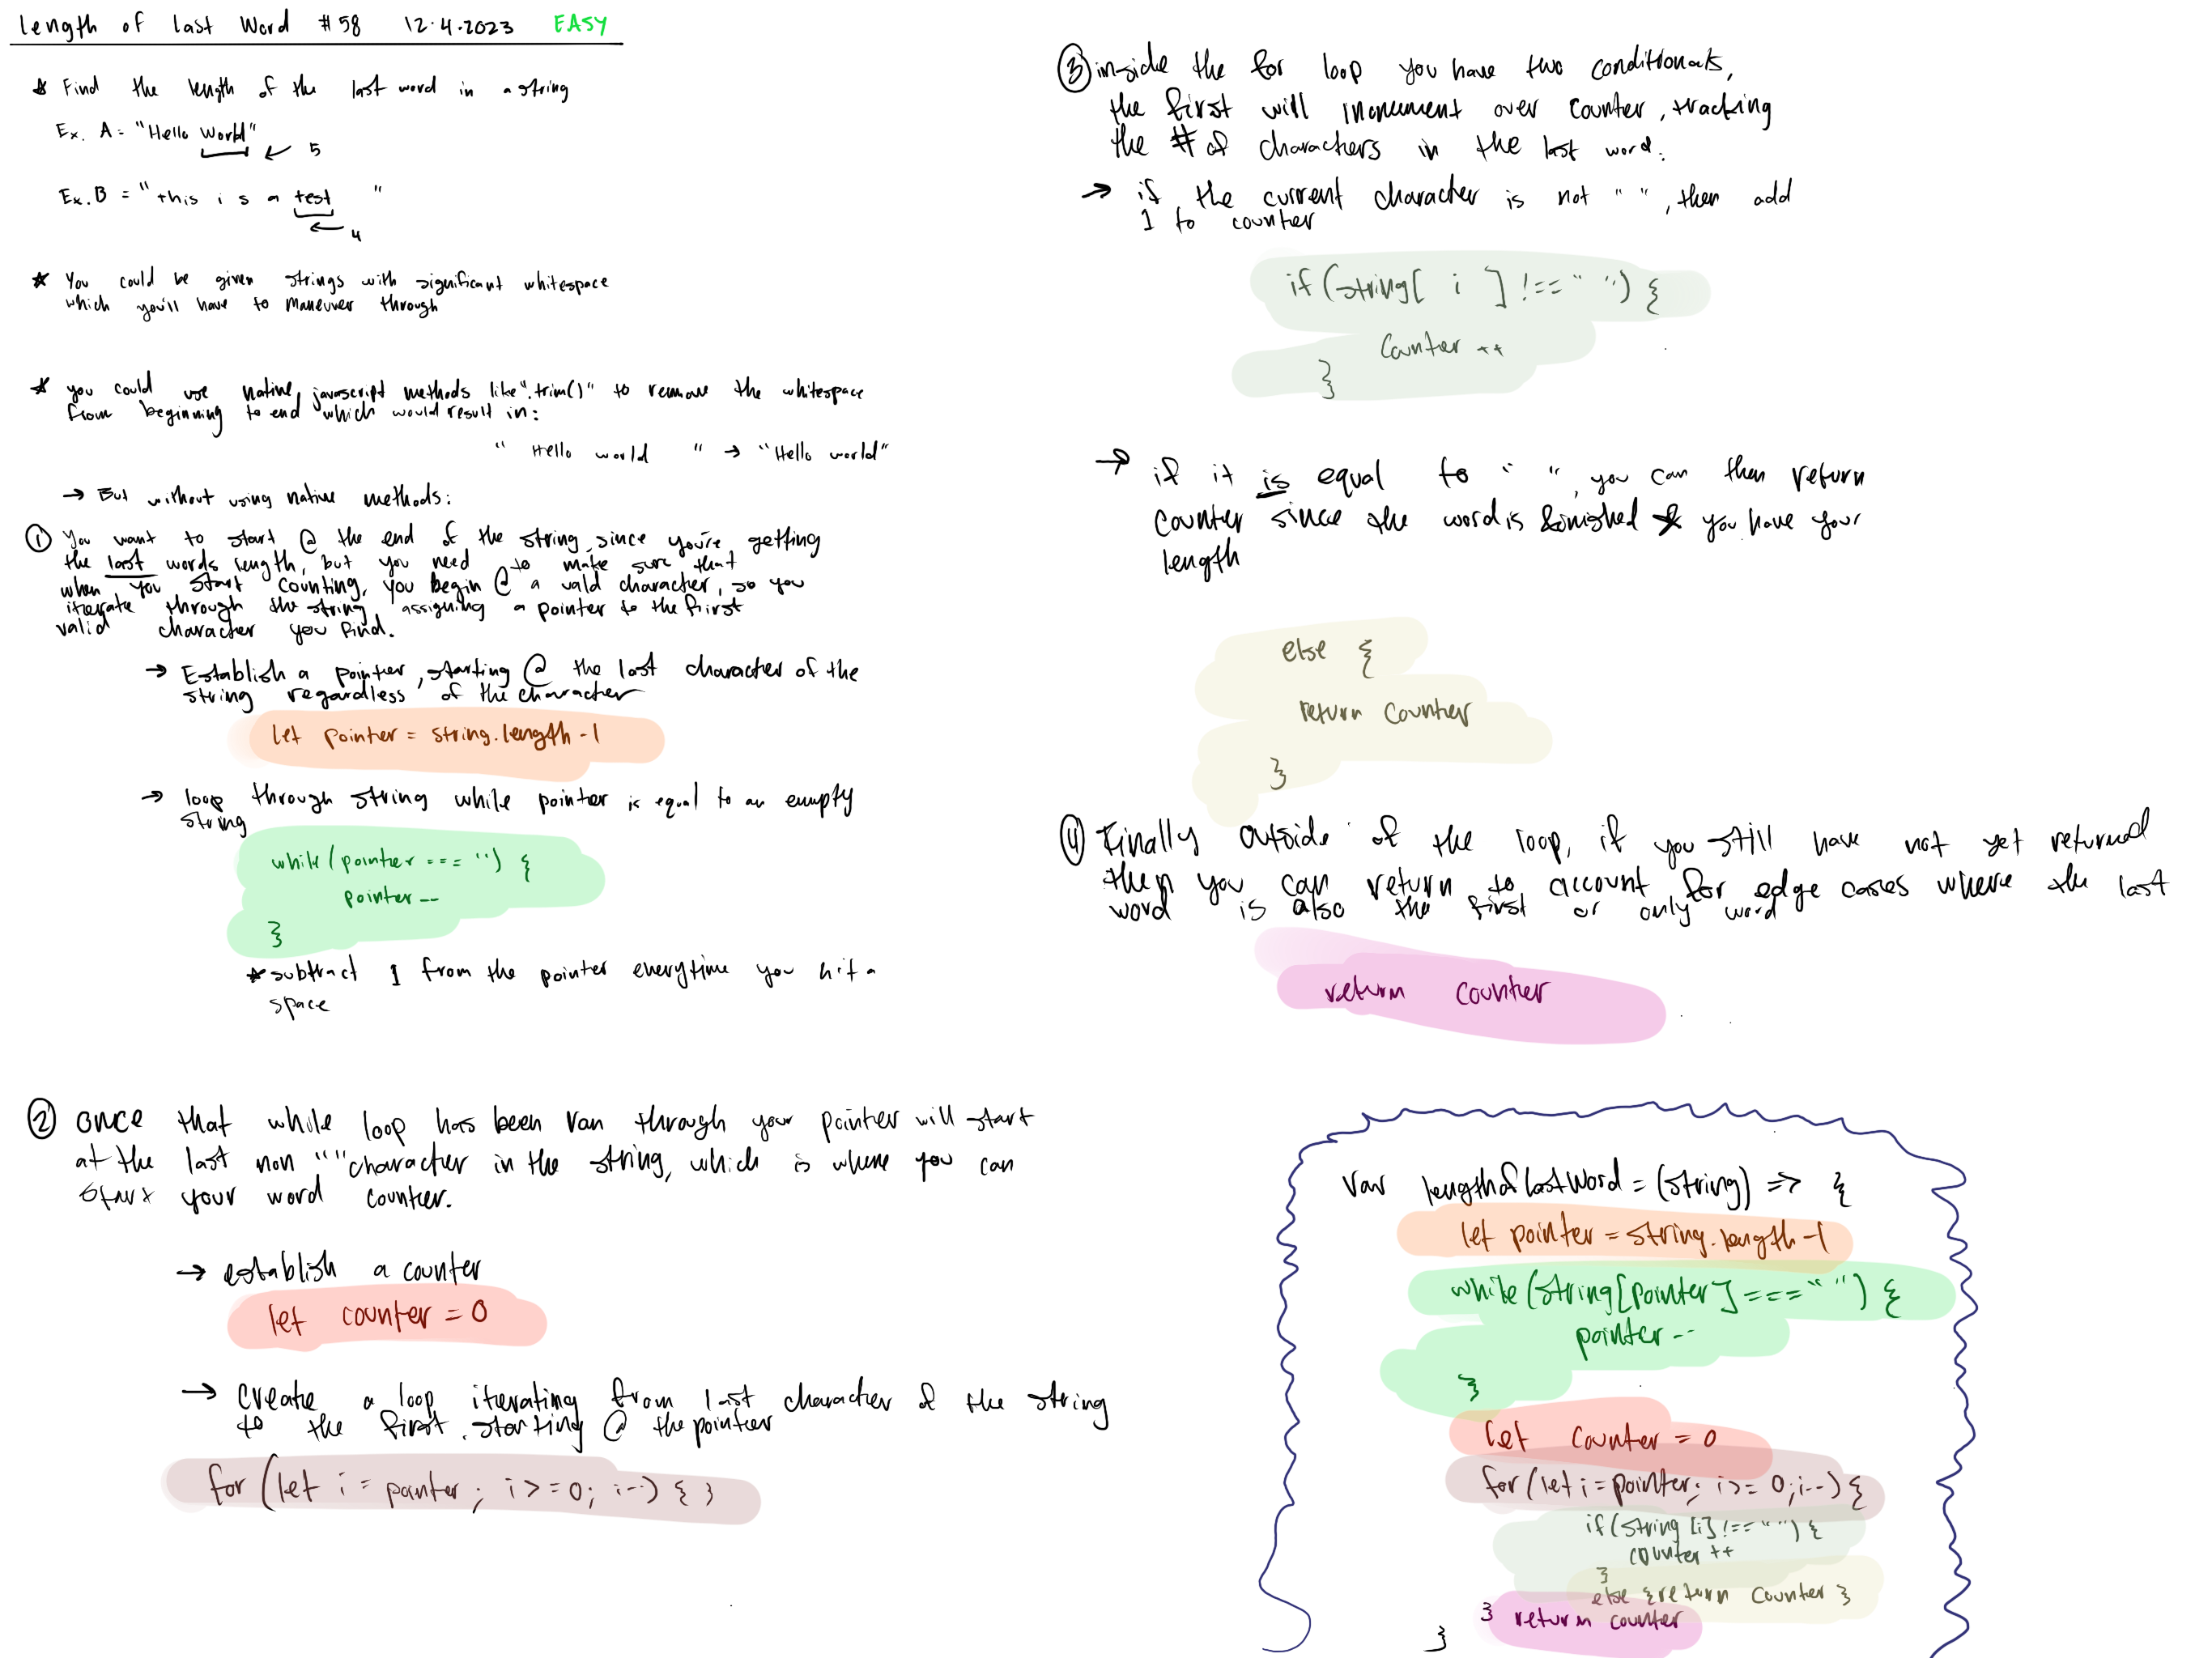 Length of last Word #58 12.4.2023 EASY
* Find the length of the last word in a string
Ex. A = "Hello World"
← 5
Ex. B = "this i s a test "
← 4
* You could be given strings with significant whitespace
which you'll have to maneuver through
* you could use native javascript methods like ".trim()" to remove the whitespace
from beginning to end which would result in:
" Hello world " → "Hello world"
→ But without using native methods:
① You want to start @ the end of the string since you're getting
the last words length, but you need to make sure that
when you start counting, you begin @ a vald character, so you
iterate through the string assigning a pointer to the first
valid character you find.
→ Establish a pointer, starting @ the last character of the
string regardless of the character
let pointer = string.length-1
→ loop through string while pointer is equal to an empty
string
while (pointer === "") {
pointer--
}
* subtract 1 from the pointer everytime you hit a
space
② once that while loop has been ran through your pointer will start
at the last non "" character in the string, which is where you can
start your word counter.
→ establish a counter
let counter = 0
→ create a loop iterating from last character of the string
to the first. starting @ the pointer
for (let i = pointer; i >= 0; i--) { }
③ inside the for loop you have two conditionals,
the first will increment over counter, tracking
the # of characters in the last word.
→ if the current character is not " ", then add
1 to counter
if (string[ i ] !== " ") {
Counter ++
}
→ if it is equal to " ", you can then return
counter since the word is finished & you have your
length
else {
return counter
}
④ Finally outside of the loop, if you still have not yet returned
then you can return to account for edge cases where the last
word is also the first or only word
return counter
var lengthofLastWord = (string) => {
let pointer = string.length-1
while (string[pointer] === " ") {
pointer--
}
let counter = 0
for (let i = pointer; i >= 0; i--) {
if (string [i] !== " ") {
counter ++
}
else { return counter }
} return counter
}